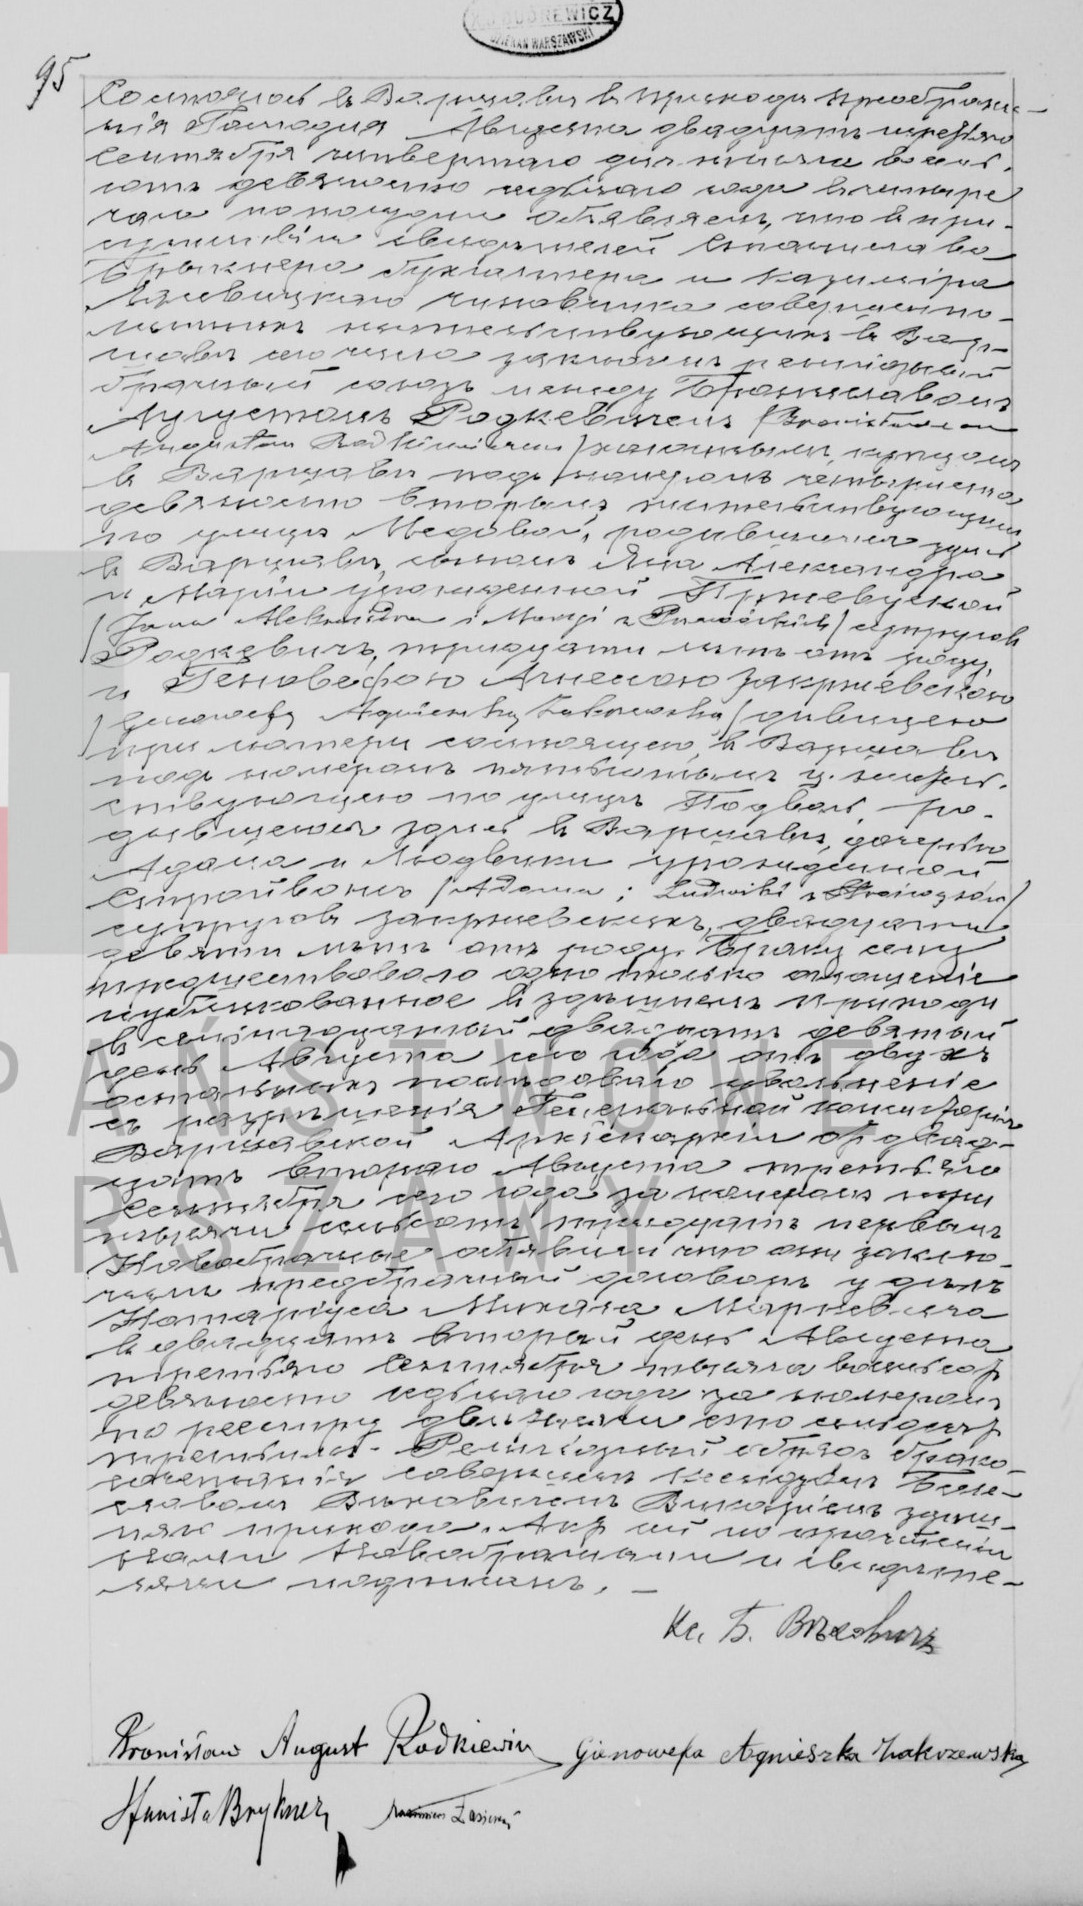 95
Состоялось въ Варшавѣ въ приходѣ преображе-
нія Господня Августа двадцать третьяго
Сентября четвертаго дня тысяча восемь-
сотъ девяносто седьмаго года въ четыре
часа пополудни Объявляемъ, что въ при-
сутствіи свидѣтелей Станислава
Брыкнера бухгалтера и Казиміра
чиновника совершенно-
лѣтнихъ жительствующихъ въ Вар-
шавѣ сего числа заключенъ религіозный
брачный союзъ между Брониславомъ
Августомъ Радкевичемъ /Bronisławem
Augustem Radkiewiczem/ холостымъ, купцомъ
въ Варшавѣ подъ номеромъ четыреста
девяносто вторымъ жительствующимъ
по улицѣ Медовой, родившимся здѣсь
въ Варшавѣ, сыномъ Яна Александра
и Маріи урожденной
/Jana Aleksandra i Maryi z / супруговъ
Радкевичъ, тридцати лѣтъ отъ роду,
и Геновефою Агнесою Закржевскою
/Genowefą Agnieszką Zakrzewską/ дѣвицею
при матери состоящею, въ Варшавѣ
подъ номеромъ пятьсотымъ ц. житель-
ствующею по улицѣ Подваль, ро-
дившеюся здѣсь въ Варшавѣ, дочерью
Адама и Людвики урожденной
/Adama i Ludwiki z /
супруговъ Закржевскихъ, двадцати
девяти лѣтъ отъ роду. Браку сему
предшествовало одно только оглашеніе
публикованное въ здѣшнемъ приходѣ
въ семнадцатый двадцать девятый
день Августа сего года отъ двухъ
остальныхъ послѣдовало увольненіе
съ разрѣшенія Генеральной консисторіи
Варшавской Архіепархіи отъ двад-
цать втораго Августа третьяго
Сентября сего года за номеромъ три
тысячи семьсотъ тридцать первымъ
Новобрачные объявили что они заклю-
чили предбрачный договоръ у дѣлъ
Нотаріуса
въ двадцать второй день Августа
третьяго Сентября тысяча восемьсотъ
девяносто седьмаго года за номеромъ
по реестру двѣ тысячи сто семьдесятъ
третьимъ. Религіозный обрядъ брако-
сочетанія совершенъ Ксендзомъ Боле-
славомъ Викаріемъ здѣш-
няго прихода. Актъ сей по прочтеніи
нами новобрачными и свидѣте-
лями подписанъ. —
Кс. Б.
Bronisław August Radkiewicz Genowefa Agnieszka Zakrzewska
Stanisła Brykner Kazimierz